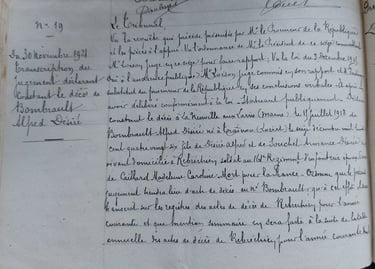 N° 19
Du 30 Novembre 1921
Transcription du
jugement déclarant
constant le décès de
Bombrault
Alfred Désiré
Le Tribunal
Vu la requête qui précède présentée par Mr le Procureur de la République
et les pièces à l'appui Vu l'ordonnance de Mr le Président de ce siège
Mr juge en ce siège pour faire rapport, Vu la loi du 3 Décembre 1915
Ouï à l'audience publique Mr juge commis en son rapport et
substitut du procureur de la République en ses conclusions verbales et après en
avoir délibéré conformément à la loi Statuant publiquement Déclare
constant le décès à la Neuville aux Larris (Marne) le juillet 1918 de
Bombrault Alfred Désiré né à (Loiret) le
cent quatre vingt six fils de Désiré Alfred et de Louchet Armance Désirée
vivant domicilié à Rebréchien soldat au Régiment d'infanterie époux
de Caillard Madeleine Caroline Mort pour la France Ordonne que le présent
jugement tiendra lieu d'acte de décès du Sr Bombrault qu'à cet effet il sera
transcrit sur les registres des actes de décès de Rebréchien pour l'année
courante et que mention sommaire en sera faite à la suite de la table
annuelle des actes de décès de Rebréchien pour l'année courante